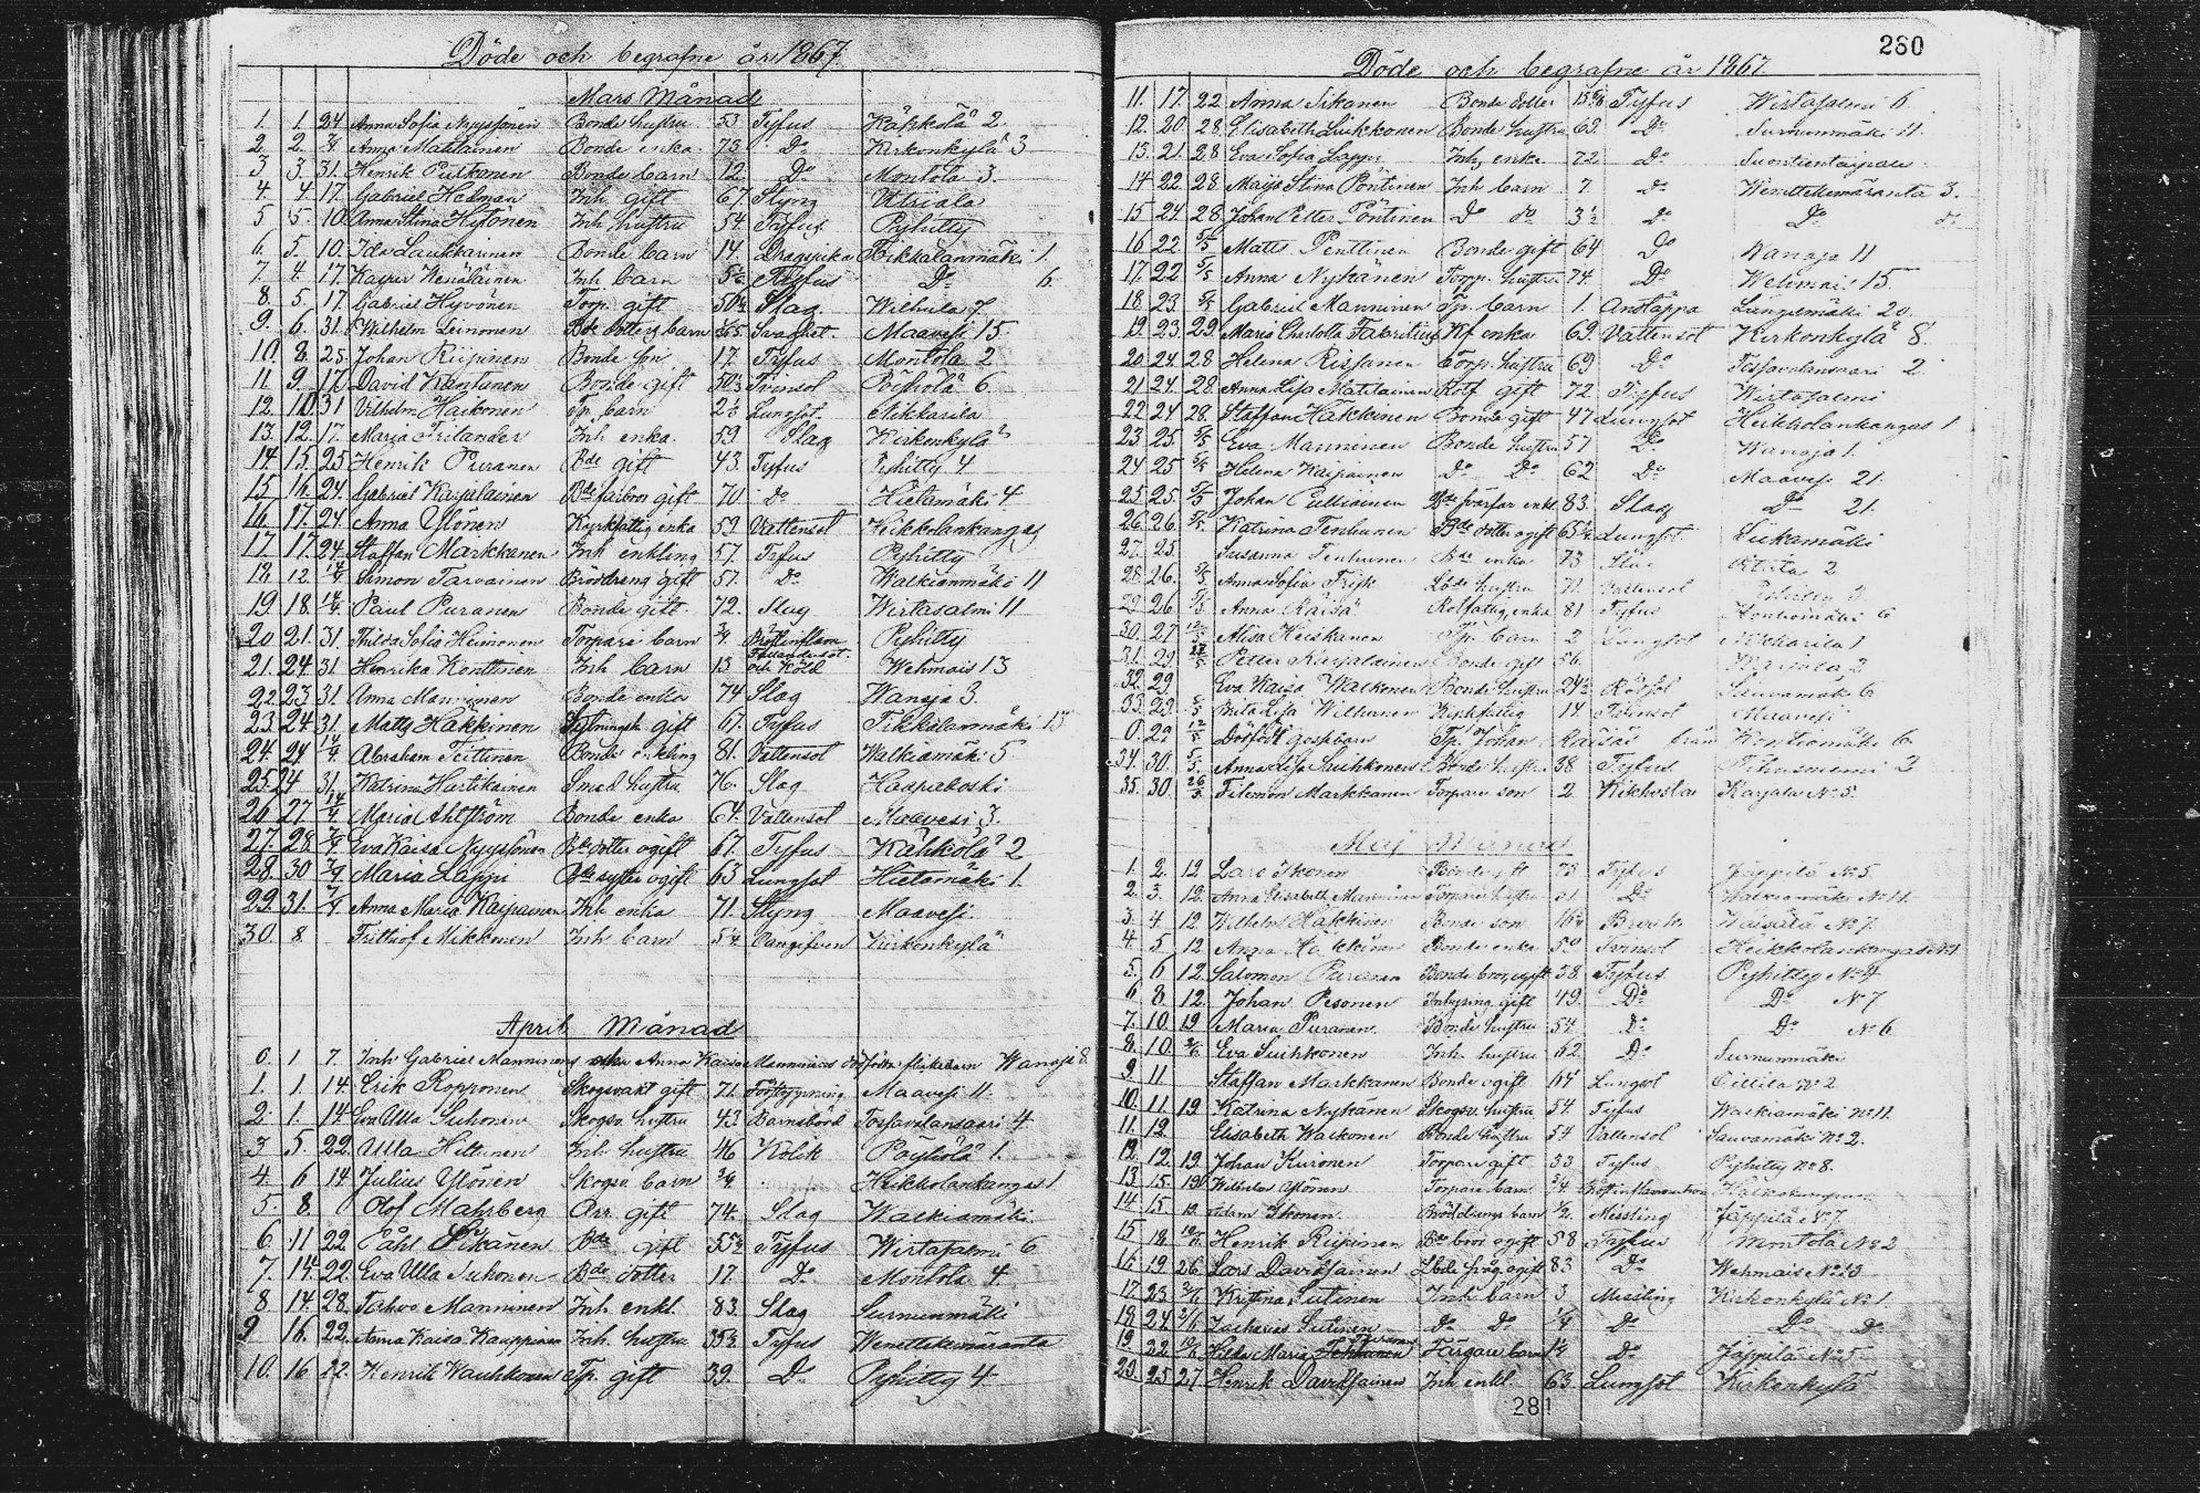 Döde och begrafne år 1867.
Mars Månad
1. 1. 24 Anna Sofia Nyyssönen Bonde hustru 53 Tyfus Käkkölä 2.
2. 2. 7/4 Anna Matilainen Bonde enka 73. Do Kirkonkylä 3
3 3. 31. Henrik Putkanen Bonde barn 12. Do Montola 3.
4. 4. 17. Gabriel Hedman Inh. gift 67. Styng Utriala
5 5. 10. Anna Stina Hytönen Inh. hustru 54. Tyfus Pyhitty
6. 5. 10. Ida Laukkarinen Bonde barn 14. Dragsjuka Tikkalanmäki 1.
7. 4. 17. Kaspar Venäläinen Inh. barn Tyfus Do 6.
8. 5. 17 Gabriel Hyvönen Torp. gift Slag Wilhula 7.
9. 6. 31. Wilhelm Leinonen Bde dotters barn Maavesi 15.
10. 8. 25. Johan Riipinen Bonde son 17. Tyfus Montola 2
11. 9. 17 David Kantanen Bonde gift Tvinsot Pöyhölä 6.
12. 10. 31 Vilhelm Haikonen Tp. barn 2½ Lungsot. Nikkarila
13. 12. 17. Maria Frilander Inh. enka. 59 Slag Kirkonkylä
14. 15. 25 Henrik Puranen Bde gift 43. Tyfus Pyhitty 4
15. 16. 24. Gabriel Karjalainen Bde farbror gift 70. Do Hietamäki 4
16. 17. 24. Anna Ylönen Kyrkfattig enka 59 Vattensot Heikkolankangas
17. 17. 24. Staffan Markkanen Inh. enkling 57 Tyfus Pyhitty
18. 12. 14/4 Simon Tarvainen Brôddreng gift 57. Do Walkiamäki 11
19. 18. 14/4 Paul Puranen Bonde gift. 72. Slag Wirtasalmi 11
20 21. 31. Thilda Sofia Heinonen Torpare barn ¾ Bröstinflam Pyhitty
21. 24 31 Henrika Konttinen Inh. barn 13 Fallandesot och Köld Wehmais 13
22. 23 31. Anna Manninen Bonde enka 74 Slag Wanaja 3.
23. 24. 31. Matts Häkkinen gift 67. Tyfus Tikkalanmäki 15
24. 24 14/4 Abraham Teittinen Bonde enkling 81. Vattensot Walkiamäki 5
25. 24 31. Katrina Hartikainen Smed hustru 76. Slag Haapakoski
26 27 14/4 Maria Ahlström Bonde enka 64. Vattensot Maavesi 3.
27. 28 7/4 Eva Kaisa Nyyssönen Bde dotter ogift 67. Tyfus Kähkölä 2
28. 30 7/4 Maria Lappi Bde syster ogift 63 Lungsot Hietamäki 1.
29. 31. 7/4 Anna Maria Kaipainen Inh. enka 71. Styng Maavesi.
30. 8 Frithiof Mikkonen Inh. barn 5¼ Oangifven Kirkonkylä
April Månad
0. 1 7. Inh. Gabriel Manninens och Anna Kaisa Manninens dödfödda flickebarn Wanaja 8.
1. 1. 14. Erik Ropponen Skogsvakt gift 71. Förstoppning Maavesi 11.
2. 1. 14 Eva Ulla Suhonen Skogsv. hustru 43. Barnsbörd Tossavalansaari 4
3 5. 22. Ulla Hiltunen Inh. hustru 46 Kolik Pöyhölä 1.
4. 6 14 Julius Ylönen Skogsv. barn ¾ Heikkolankangas 1
5. 8. Olof Mahrberg Arr. gift 74. Slag Walkiamäki.
6. 11 22 Påhl Sikanen Bde gift 55½ Tyfus Wirtasalmi 6
7. 14. 22. Eva Ulla Suhonen Bde dotter 17. Do Montola 4
8. 14. 28. Tahvo Manninen Inh. enkl. 83. Slag Surnunmäki
9 16. 22. Anna Kaisa Kauppinen Inh. hustru 35½ Tyfus Wenettekemäranta
10. 16 22. Henrik Wauhkonen Tp. gift 39. Do Pyhitty 4.
280
Döde och begrafne år 1867.
11. 17. 22 Anna Sikanen Bonde dotter Tyfus Wirtasalmi 6
12. 20 28. Elisabeth Liukkonen Bonde hustru 63. Do Surnunmäki 11.
13. 21. 28 Eva Sofia Lappi Inh. enka 72 Do Suontientaipale
14 22. 28. Maija Stina Pöntinen Inh. barn 7. Do Wenettekemäranta 3.
15 24. 28. Johan Petter Pöntinen Do do 3½ Do Do d:o
16 22. 5/5 Matts Penttinen Bonde gift 64 Do Wanaja 11
17. 22 5/5 Anna Nykänen Torp. hustru 74. Do Wehmais 15.
18. 23. 5/5 Gabriel Manninen Tp. barn 1. Andtäppa Längelmäki 20.
19. 23. 29. Maria Charlotta Fabritius Kf. enka 69. Vattensot Kirkonkylä 8.
20 24. 28 Helena Rissanen Torp. hustru 69 Do Tossavalansaari 2.
21 24. 28. Anna Lisa Matilainen Rotf. gift 72. Tyfus Wirtasalmi
22 24 28 Staffan Häkkinen Bonde gift 47 Lungsot Heikkolankangas 1
23. 25. 5/5 Eva Manninen Bonde hustru 57 Do Wanaja 1.
24 25 5/5 Helena Kaipainen Do Do 62 Do Maavesi 21.
25. 25. 5/5 Johan Pulliainen Bde svärfar enkl. 83. Slag Do 21.
26. 26. 5/5. Katrina Tenhunen Bde dotter ogift 65½ Lungsot Siikamäki
27. 25. Susanna Tenhunen Bde enka 73 Slag 2
28. 26. 5/5. Anna Sofia Frisk hustru 71. Vattensot
29 26. 5/5 Anna Räisä Rotfattig enka 81 Tyfus Kontiomäki 6
30. 27 12/5 Alisa Heiskanen Tp. barn 2 Lungsot Nikkarila 1
31. 29. Petter Karjalainen Bonde gift 56. Karjala 2
32. 29. Eva Kaisa Walkonen Bonde hustru 24½ Rödsot Sauvamäki 6
33. 29. Brita Lisa Wilhunen Kyrkfattig 14. Tvinsot Maavesi
0. 29 12/5 Dödfödt gossebarn Tp. Johan Räisäs från Kontiomäki 6.
34. 30. 5/5. Anna Lisa Suihkonen Bonde hustru 38 Tyfus Tihusniemi 2
35. 30. Filemon Markkanen Torpare son 2. Kikhosta Karjala No 5.
Maj Månad
1. 2. 12 Lars Ikonen Bonde gift 73 Tyfus Jäppilä No 5.
2. 3. 12. Anna Elisabeth Manninen Torpare hustru Do Walkiamäki No 11.
3. 4 12. Wilhelm Häkkinen Bonde son Bråck Waisälä No 7.
4. 5 12 Anna Häkkinen Bonde enka 50 Tvinsot Heikkolankangas No 1
5. 6 12. Salomon Puranen Bonde bror, ogift 58. Tyfus Pyhitty No 4
6 8. 12. Johan Pesonen Inhysing, gift 49. Do Do No 7
7. 10. 19 Maria Puranen. Bonde hustru 54. Do Do No 6
8. 10. 2/6 Eva Suihkonen Inh. hustru 62. Do Surnunmäki
9 11 Staffan Markkanen Bonde ogift 64 Lungsot No 2
10. 11. 19 Katrina Nykänen Skogsv. hustru 54. Tyfus Walkiamäki No 11.
11. 12. Elisabeth Waikonen Bonde hustru 54 Vattensot Sauvamäki No 2.
12. 12. 19. Johan Kuronen Torpare gift 33 Tyfus Pyhitty No 8.
13 15. 19 Wilhelm Ylönen Torpare barn ¾ Bröstinflammation
14 15. 19. Adam Ikonen. barn ½. Messling Jäppilä No 7
15 18. Henrik Riipinen Bde bror ogift 58 Tyfus Montola No 2
16 19 26 Lars Davidsainen ogift 83 Do Wehmais No 13
17. 23 2/6 Kristina Sutinen Inh. barn 3 Messling Kirkonkylä No 1.
18 24 2/6 Zacharias Sutinen Do Do ¼ Do Do Do
19. 22 Hilda Maria Färgare barn Do Jäppilä No 5
20. 25 27 Henrik Davidsainen Inh. enkl. 63. Lungsot Kirkonkylä
281